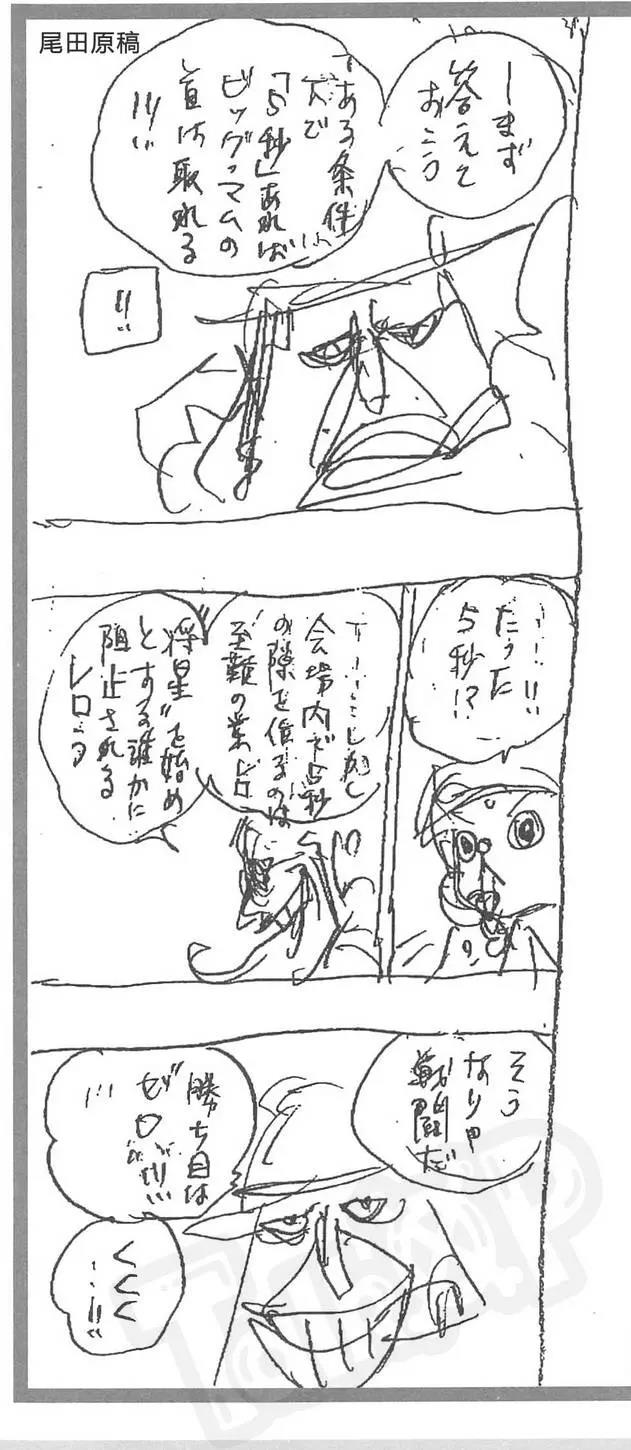 尾田原稿
まず
答えて
おこう
ある条件
下で
「5秒」あれば
ビッグ・マムの
首は取れる
!!!
!!
…!!
たった
5秒!?
しかし
会場内で5秒
の隙を作るのは
至難の業レロ
"将星"を始め
とする誰かに
阻止される
レロ
そう
なりゃ
戦闘だ
勝ち目は
ゼロ!!!
!!!
くくく
…!!